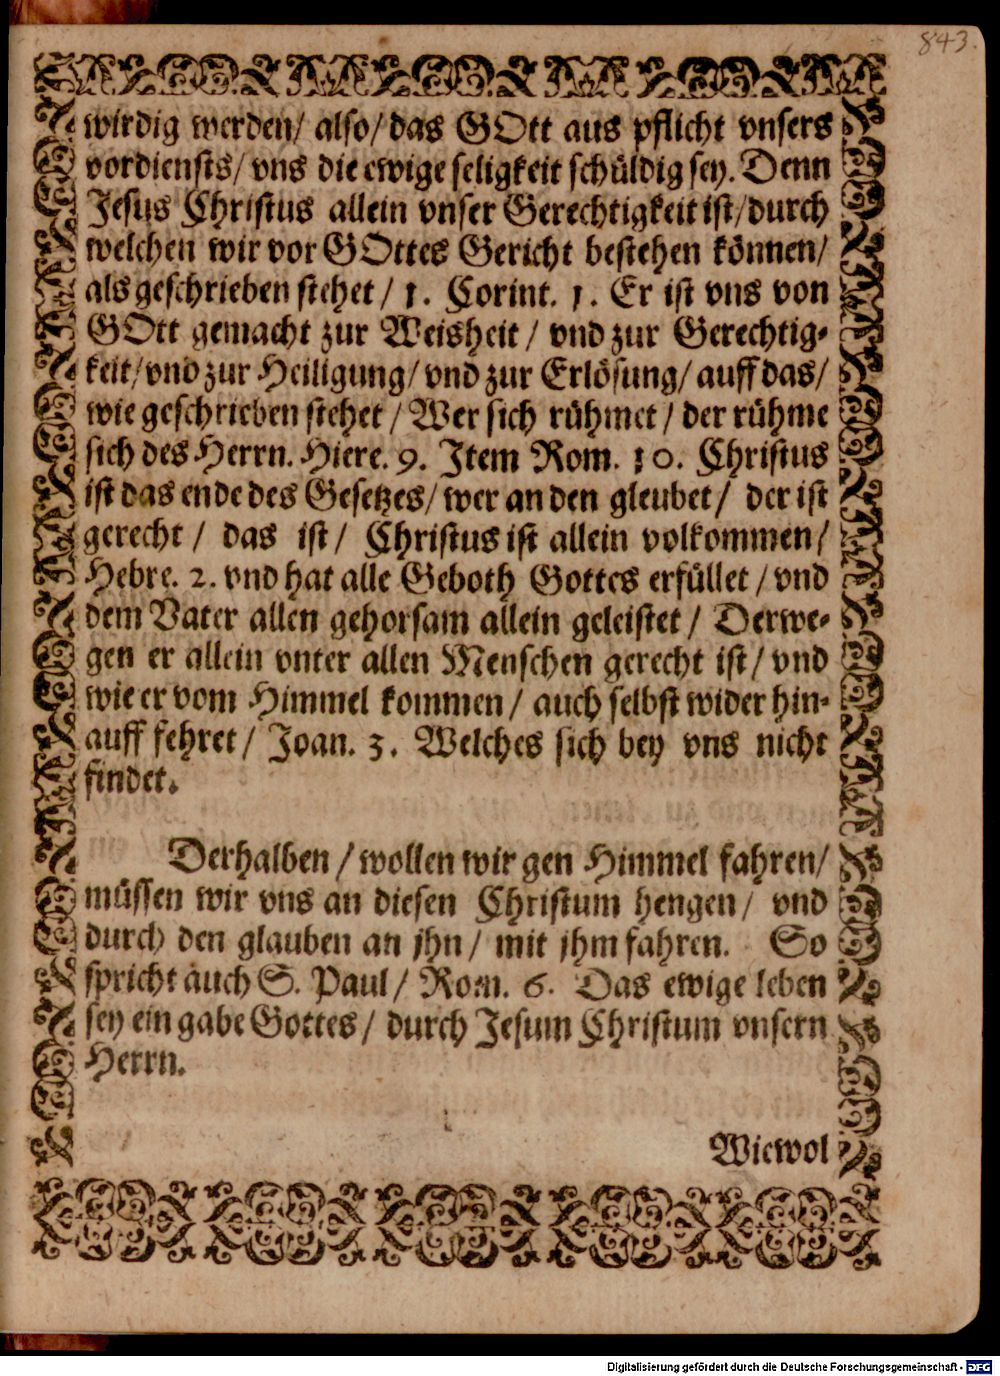 843.
wirdig werden/ also/ das GOtt aus pflicht vnsers
vordiensts/ vns die ewige seligkeit schüldig sey. Denn
Jesus Christus allein vnser Gerechtigkeit ist/ durch
welchen wir vor GOttes Gericht bestehen können/
als geschrieben stehet / 1. Corint. 1. Er ist vns von
GOtt gemacht zur Weisheit / vnd zur Gerechtig-
keit/ vnd zur Heiligung/ vnd zur Erlösung/ auff das/
wie geschrieben stehet / Wer sich rühmet / der rühme
sich des Herrn. Hiere. 9. Item Rom. 10. Christus
ist das ende des Gesetzes/ wer an den gleubet/ der ist
gerecht / das ist/ Christus ist allein volkommen/
Hebre. 2. vnd hat alle Geboth Gottes erfüllet / vnd
dem Vater allen gehorsam allein geleistet / Derwe-
gen er allein vnter allen Menschen gerecht ist/ vnd
wie er vom Himmel kommen / auch selbst wider hin-
auff fehret / Joan. 3. Welches sich bey vns nicht
findet.
Derhalben / wollen wir gen Himmel fahren/
müssen wir vns an diesen Christum hengen/ vnd
durch den glauben an jhn / mit jhm fahren. So
spricht auch S. Paul / Rom. 6. Das ewige leben
sey ein gabe Gottes / durch Jesum Christum vnsern
Herrn.
Wiewol
Digitalisierung gefördert durch die Deutsche Forschungsgemeinschaft - DFG